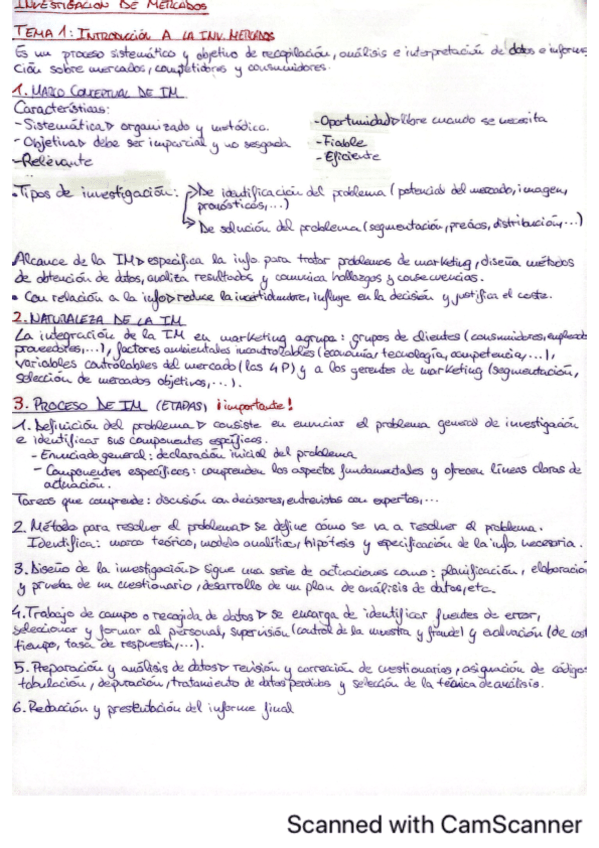 INVESTIGACIÓN DE MERCADOS
TEMA 1: INTRODUCCIÓN A LA INV. MERCADOS
Es un proceso sistemático y objetivo de recopilación, análisis e interpretación de datos e informa
ción sobre mercados, competidores y consumidores.
1. MARCO CONCEPTUAL DE IM
Características:
- Sistemática ▷ organizado y metódica.
- Objetiva ▷ debe ser imparcial y no sesgada
- Relevante
- Oportunidad ▷ libre cuando se necesita
- Fiable
- Eficiente
• Tipos de investigación: De identificación del problema (potencial del mercado, imagen,
pronósticos,...)
De solución del problema (segmentación, precios, distribución,...)
Alcance de la IM ▷ especifica la info para tratar problemas de marketing, diseña métodos
de obtención de datos, analiza resultados y comunica hallazgos y consecuencias.
• Con relación a la info ▷ reduce la incertidumbre, influye en la decisión y justifica el coste.
2. NATURALEZA DE LA IM
La integración de la IM en marketing agrupa: grupos de clientes (consumidores, emplead
proveedores,...), factores ambientales incontrolables (economía, tecnología, competencia,...),
variables controlables del mercado (las 4P) y a los gerentes de marketing (segmentación,
selección de mercados objetivos,...).
3. PROCESO DE IM (ETAPAS) ¡importante!
1. Definición del problema ▷ consiste en enunciar el problema general de investigación
e identificar sus componentes específicos.
- Enunciado general: declaración inicial del problema
- Componentes específicos: comprenden los aspectos fundamentales y ofrecen líneas claras de
actuación.
Tareas que comprende: discusión con decisores, entrevistas con expertos,...
2. Método para resolver el problema ▷ se define cómo se va a resolver el problema.
Identifica: marco teórico, modelo analítico, hipótesis y especificación de la info. necesaria.
3. Diseño de la investigación ▷ sigue una serie de actuaciones como: planificación, elaboración
y prueba de un cuestionario, desarrollo de un plan de análisis de datos, etc.
4. Trabajo de campo o recogida de datos ▷ se encarga de identificar fuentes de error,
seleccionar y formar al personal, supervisión (control de la muestra y fraude) y evaluación (de cost
tiempo, tasa de respuesta,...).
5. Preparación y análisis de datos ▷ revisión y corrección de cuestionarios, asignación de códigos
tabulación, depuración, tratamiento de datos perdidos y selección de la técnica de análisis.
6. Redacción y presentación del informe final
Scanned with CamScanner